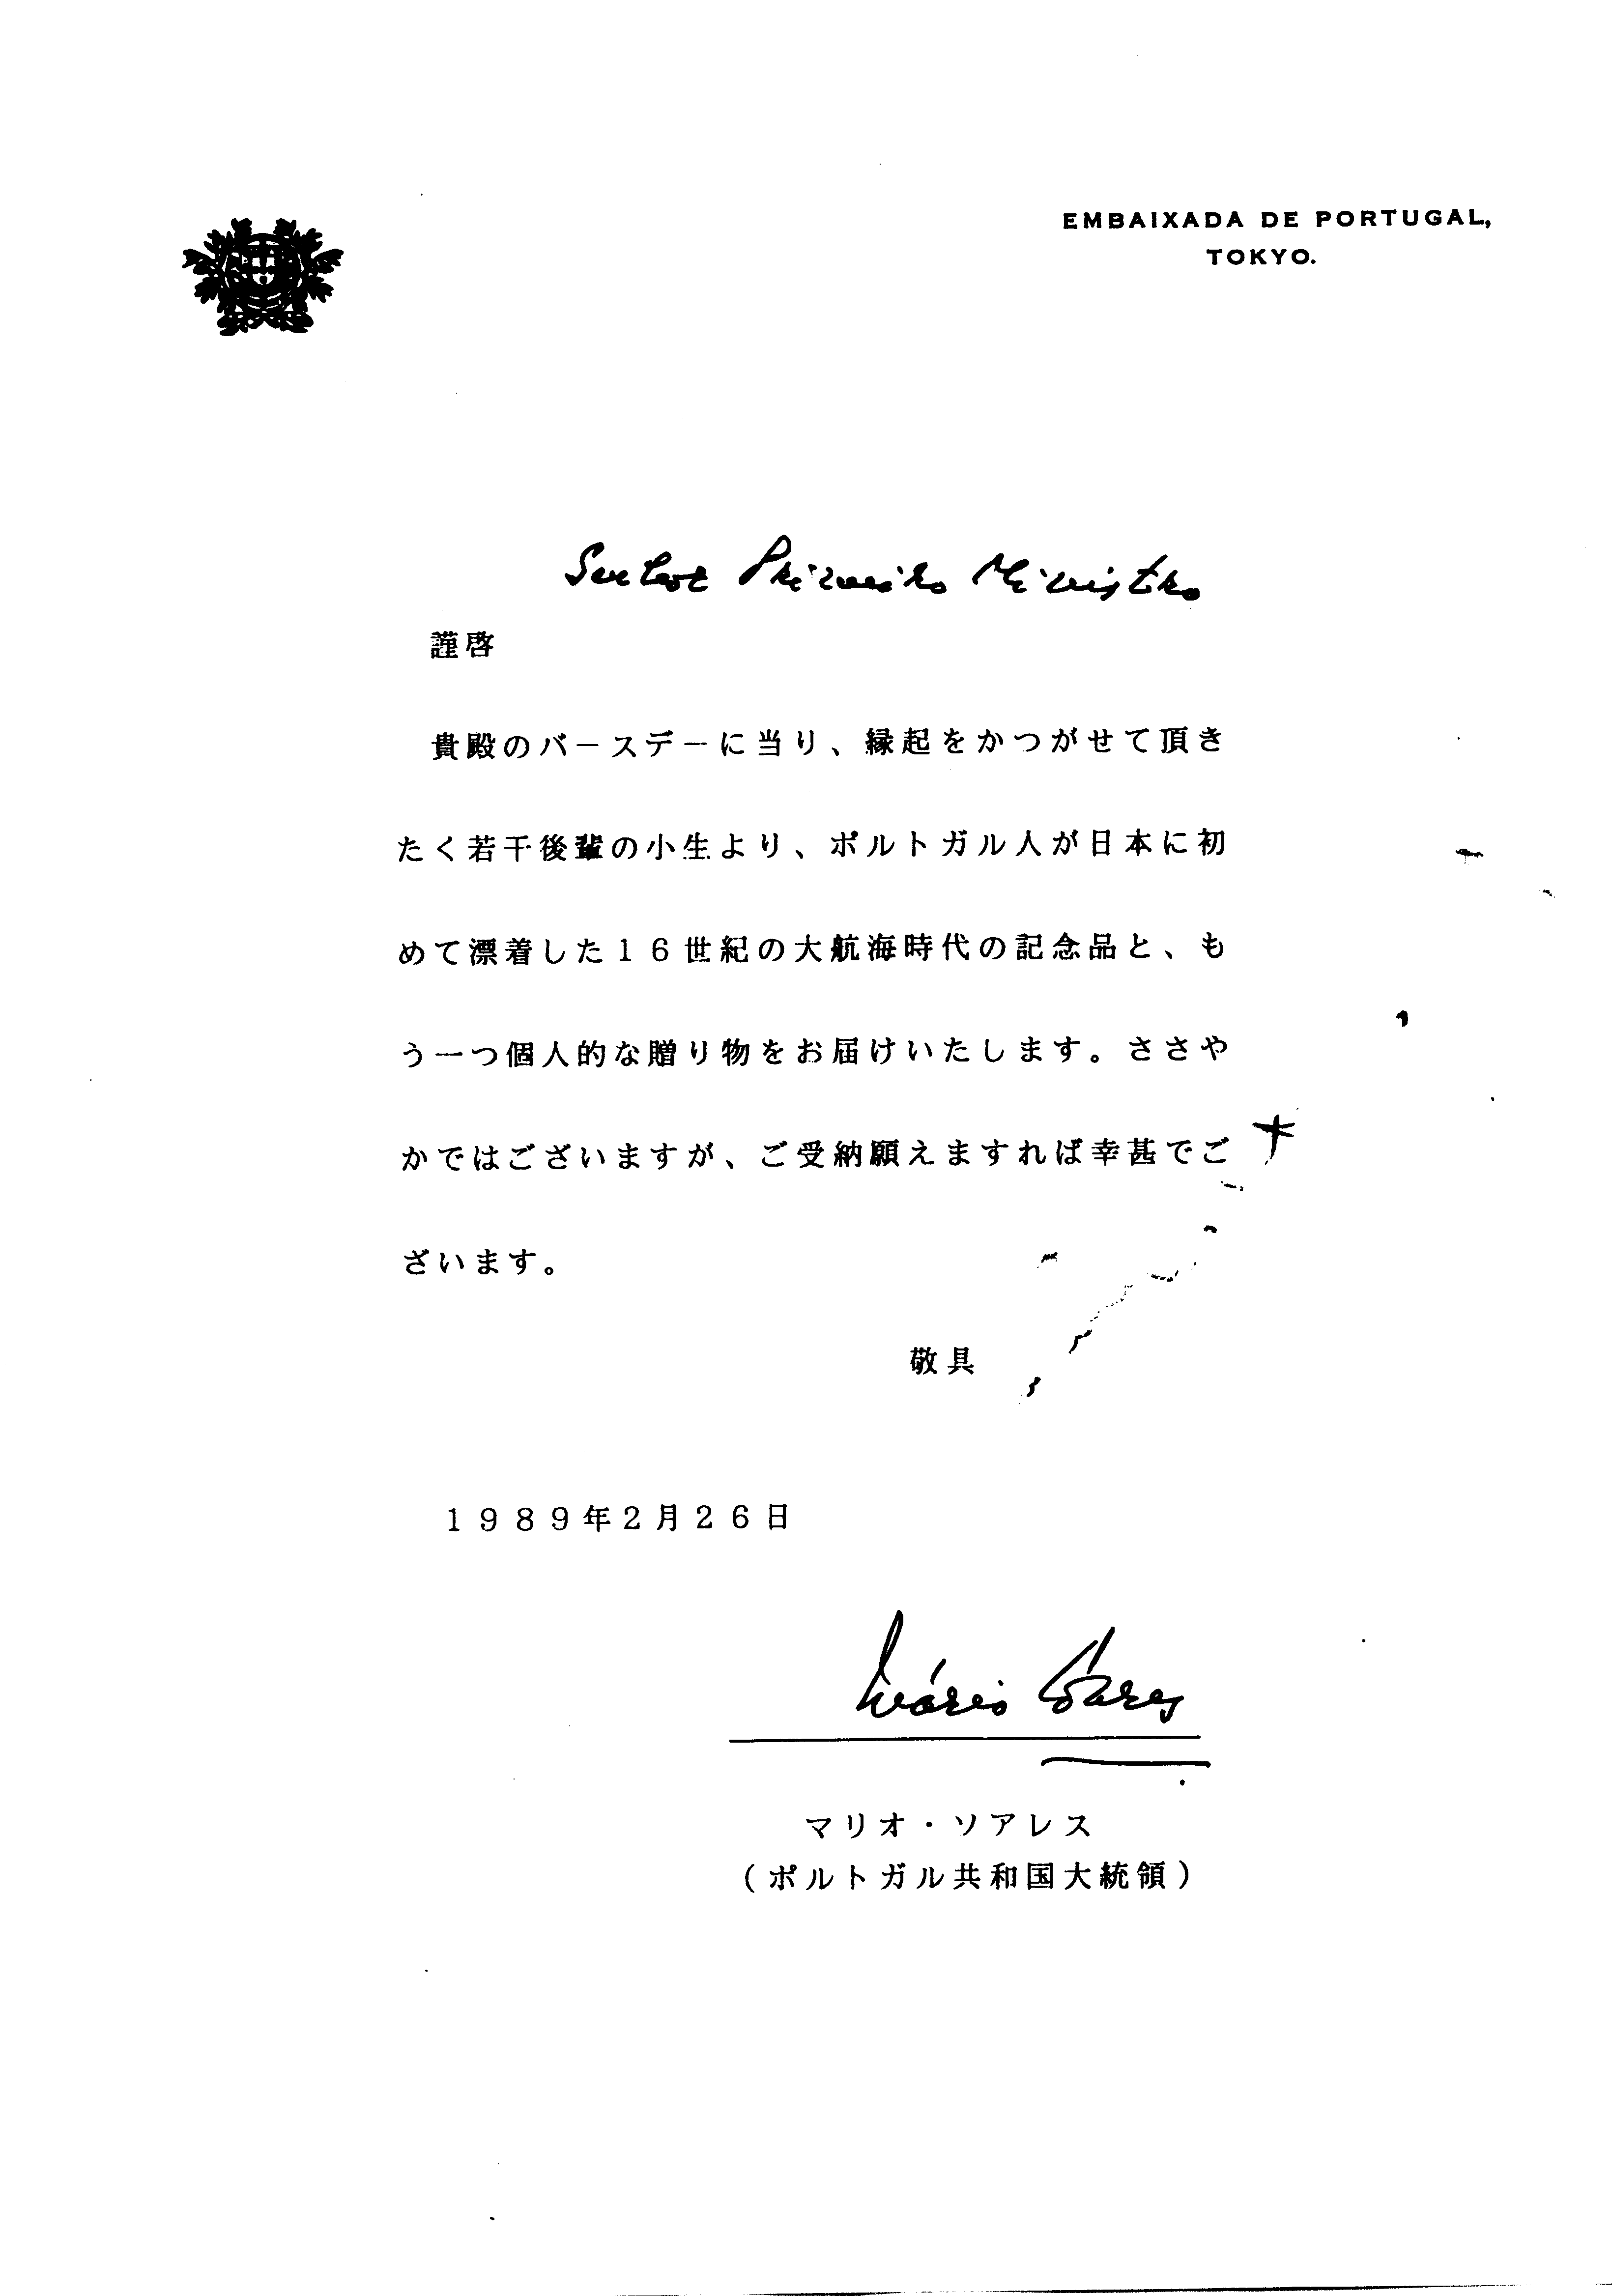 EMBAIXADA DE PORTUGAL,
TOKYO.
Senhor Primeiro Ministro
謹啓
貴殿のバースデーに当り、縁起をかつがせて頂き
たく若干後輩の小生より、ポルトガル人が日本に初
めて漂着した16世紀の大航海時代の記念品と、も
う一つ個人的な贈り物をお届けいたします。ささや
かではございますが、ご受納願えますれば幸甚でご
ざいます。
敬具
1989年2月26日
Mário Soares
マリオ・ソアレス
(ポルトガル共和国大統領)